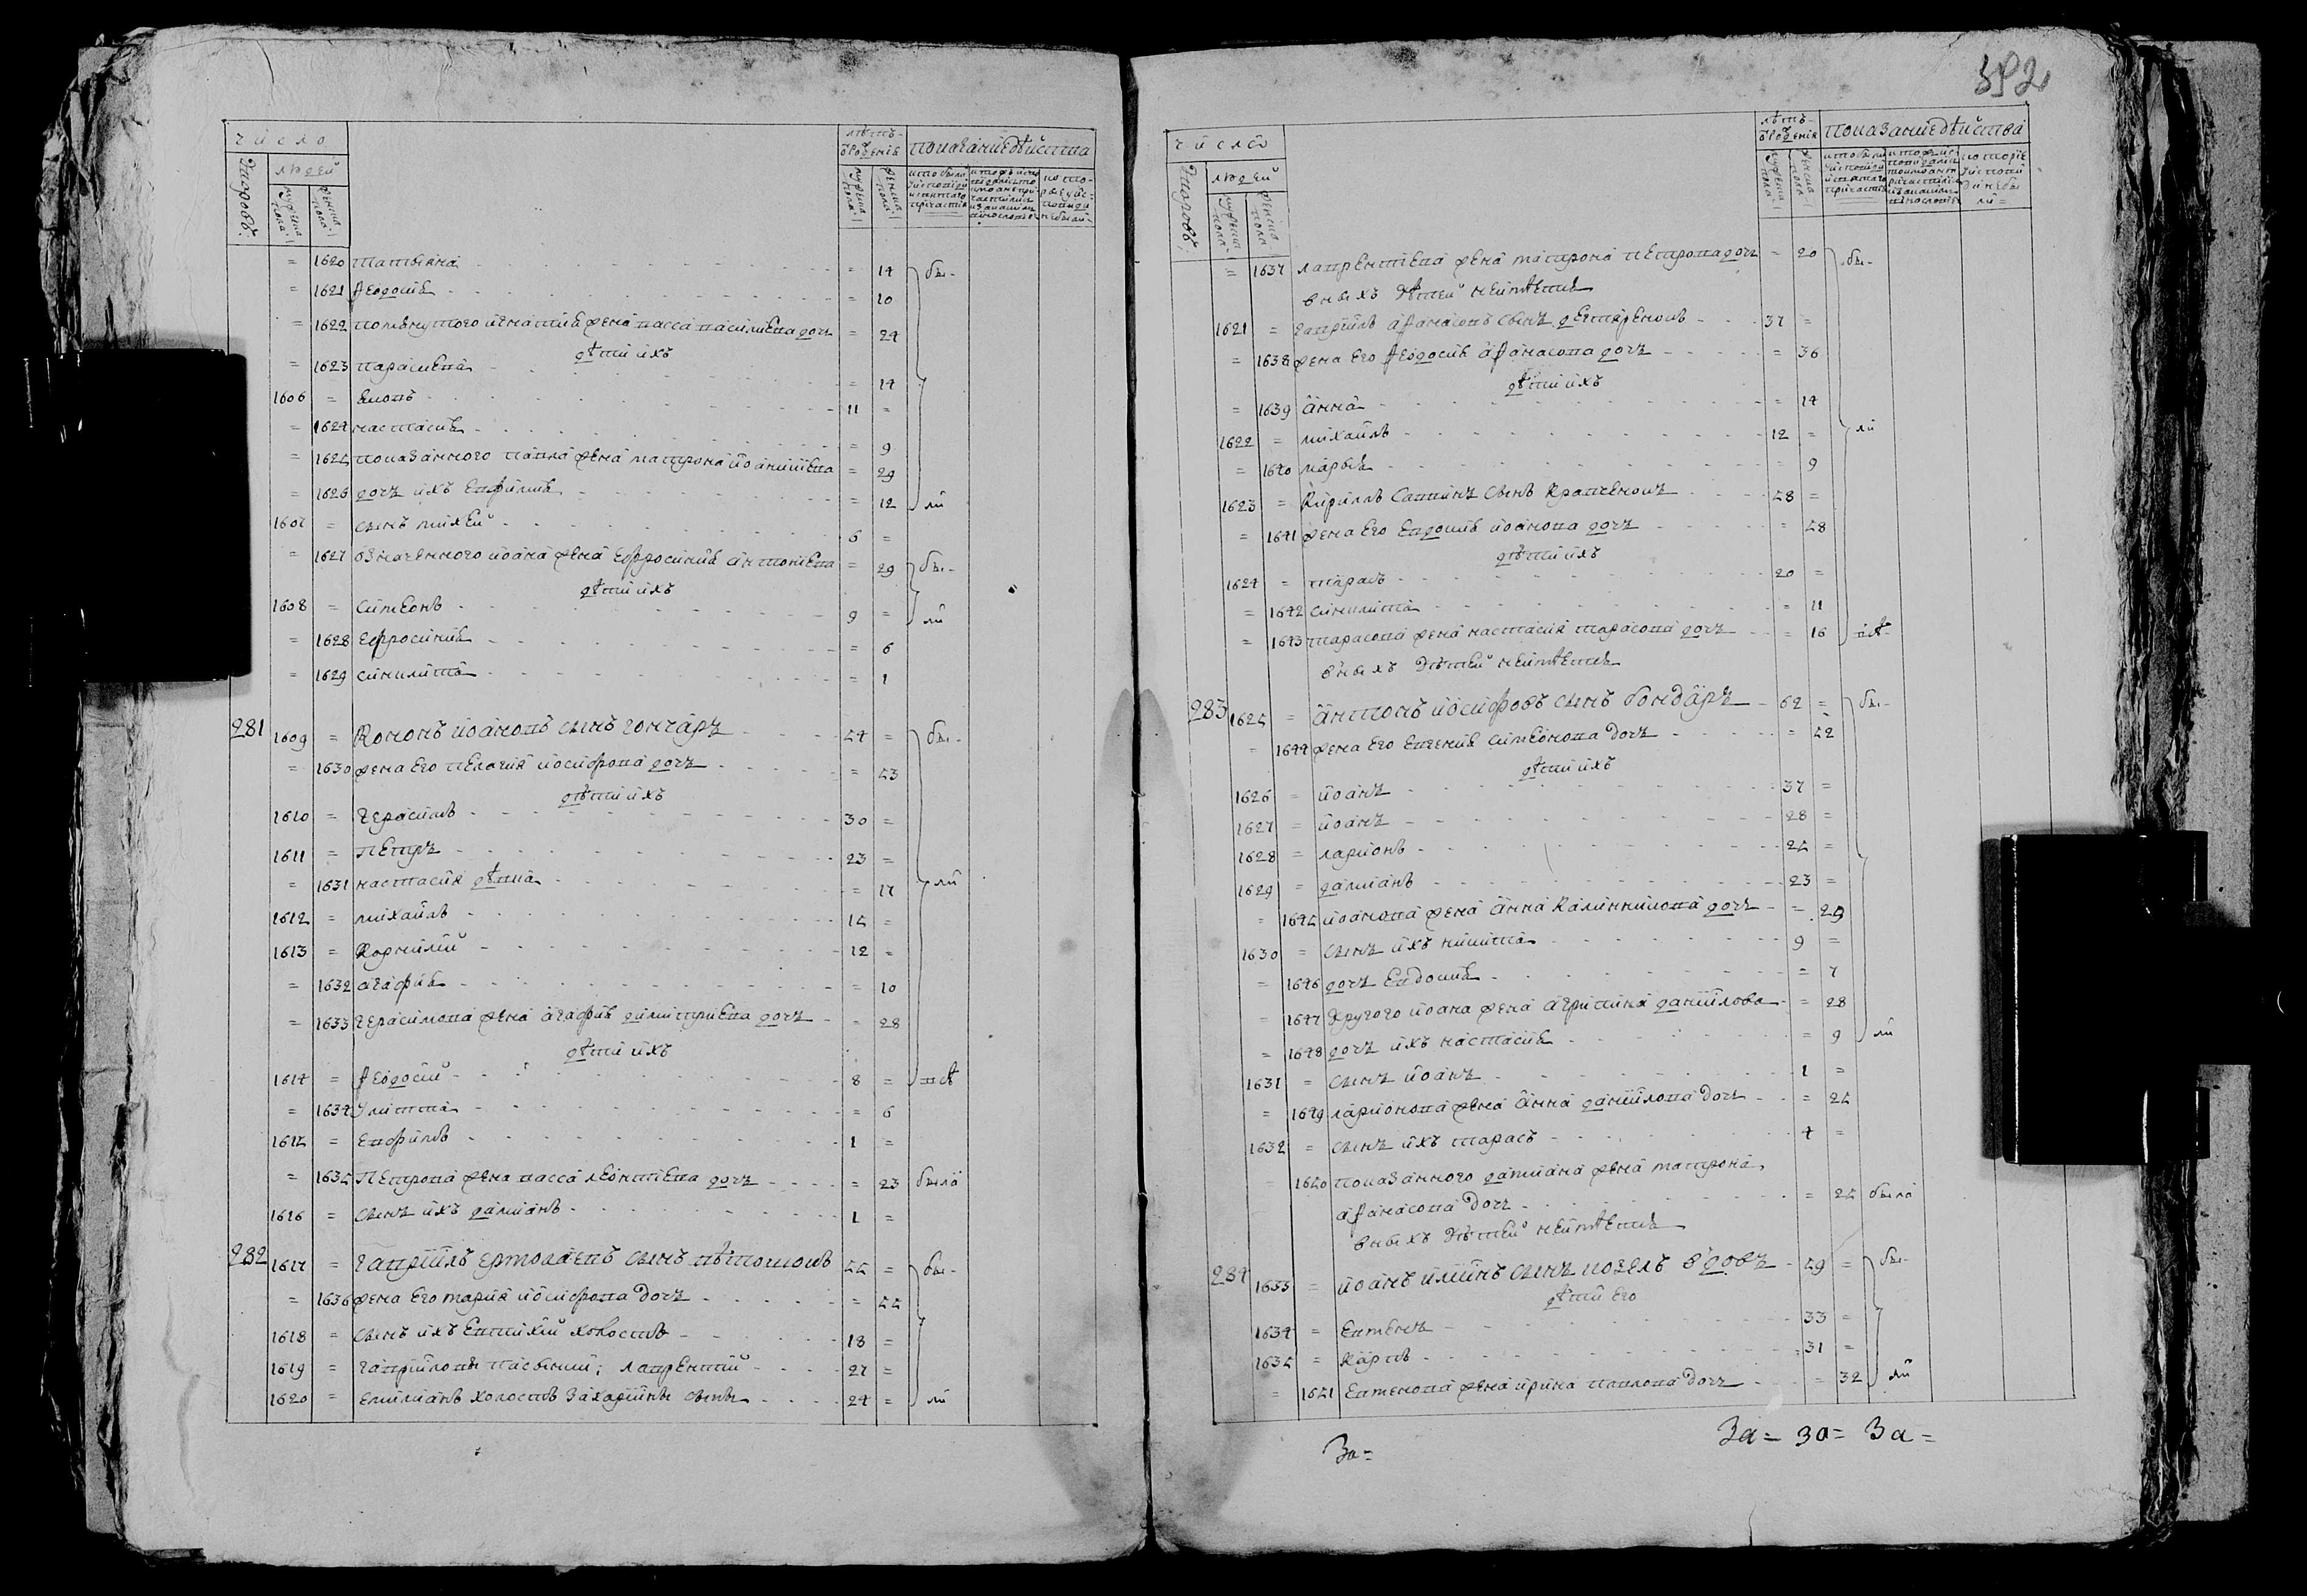 392
число
лѣтъ
ѿ рожденія
показаніе дѣйства
дворовъ
людей
мужеска пола
женска пола
мужеска пола
женска пола
= 1620 татьяна = 14 бы-
= 1621 ѳеодосія = 10
= 1622 помянутого игнатія жена васса василіева дочь = 24
дѣти ихъ
= 1623 параскева = 14
1606 = яковъ 11 =
= 1624 настасія = 9
= 1625 показанного павла жена матрона іоанніева = 29
= 1626 дочь ихъ евфимія = 12 ли
1607 = сынъ михей 6 =
= 1627 означенного іоана жена ефросинія антоніева = 29 бы-
дѣти ихъ
1608 = симеонъ 9 = ли
= 1628 ефросинія = 6
= 1629 синклита = 1
281 1609 = Кононъ іоановъ сынъ гончаръ 54 = бы-
= 1630 жена его пелагія іосифова дочь = 53
дѣти ихъ
1610 = герасимъ 30 =
1611 = петръ 23 =
= 1631 настасія дѣвка = 17 ли
1612 = михаилъ 15 =
1613 = Корнилій 12 =
= 1632 агафія = 10
= 1633 герасимова жена агафія димитріева дочь = 28
дѣти ихъ
1614 = ѳеодосій 8 =
= 1634 улитта = 6
1615 = евфимъ 1 =
= 1635 петрова жена васса леонтіева дочь = 23 была
1616 = сынъ ихъ даміанъ 1 =
282 1617 = гавріилъ ермолаевъ сынъ 55 = бы-
= 1636 жена его марія іосифова дочь = 55
1618 = сынъ ихъ евтихій холостъ 18 =
1619 = гавріиловы пасынки; лаврентій 27 =
1620 = емиліанъ холостъ захаріины сыны 24 = ли
число
лѣтъ
ѿ рожденія
показаніе дѣйства
дворовъ
людей
мужеска пола
женска пола
мужеска пола
женска пола
= 1637 лаврентіева жена матрона петрова дочь = 20 бы-
в ныхъ дѣтей неимѣетця
1621 = гавріилъ аѳанасовъ сынъ 37 =
= 1638 жена его ѳеодосія аѳанасова дочь = 36
дѣти ихъ
= 1639 анна = 14
1622 = михаилъ 12 = ли
= 1640 марья = 9
1623 = Кирилъ савинъ сынъ 58 =
= 1641 жена его евдокія іоанова дочь = 58
дѣти ихъ
1624 = тарасъ 20 =
= 1642 синклита = 11
= 1643 тарасова жена настасія тарасова дочь = 16
в ныхъ дѣтей неимѣетця
283 1625 = антонъ іосифовъ сынъ бондаръ 62 = бы-
= 1644 жена его евгенія симеонова дочь = 52
дѣти ихъ
1626 = іоанъ 37 =
1627 = іоанъ 28 =
1628 = ларионъ 25 =
1629 = даміанъ 23 =
= 1645 іоанова жена анна калинникова дочь = 29
1630 = сынъ ихъ никита 9 =
= 1646 дочь евдокія = 7
= 1647 другого іоана жена агрипина даніилова = 28
= 1648 дочь ихъ настасія = 9 ли
1631 = сынъ іоанъ 1 =
= 1649 ларионова жена анна даніилова дочь = 25
1632 = сынъ ихъ тарасъ 4 =
= 1650 показанного даміана жена матрона
аѳанасова дочь = 25 была
в ныхъ дѣтей неимѣетця
284 1633 = іоанъ иліинъ сынъ козелъ вдовъ 59 = бы-
дѣти его
1634 = евменъ 33 =
1635 = карпъ 31 =
= 1651 евменова жена ирина павлова дочь = 32 ли
За=
За= За= За=